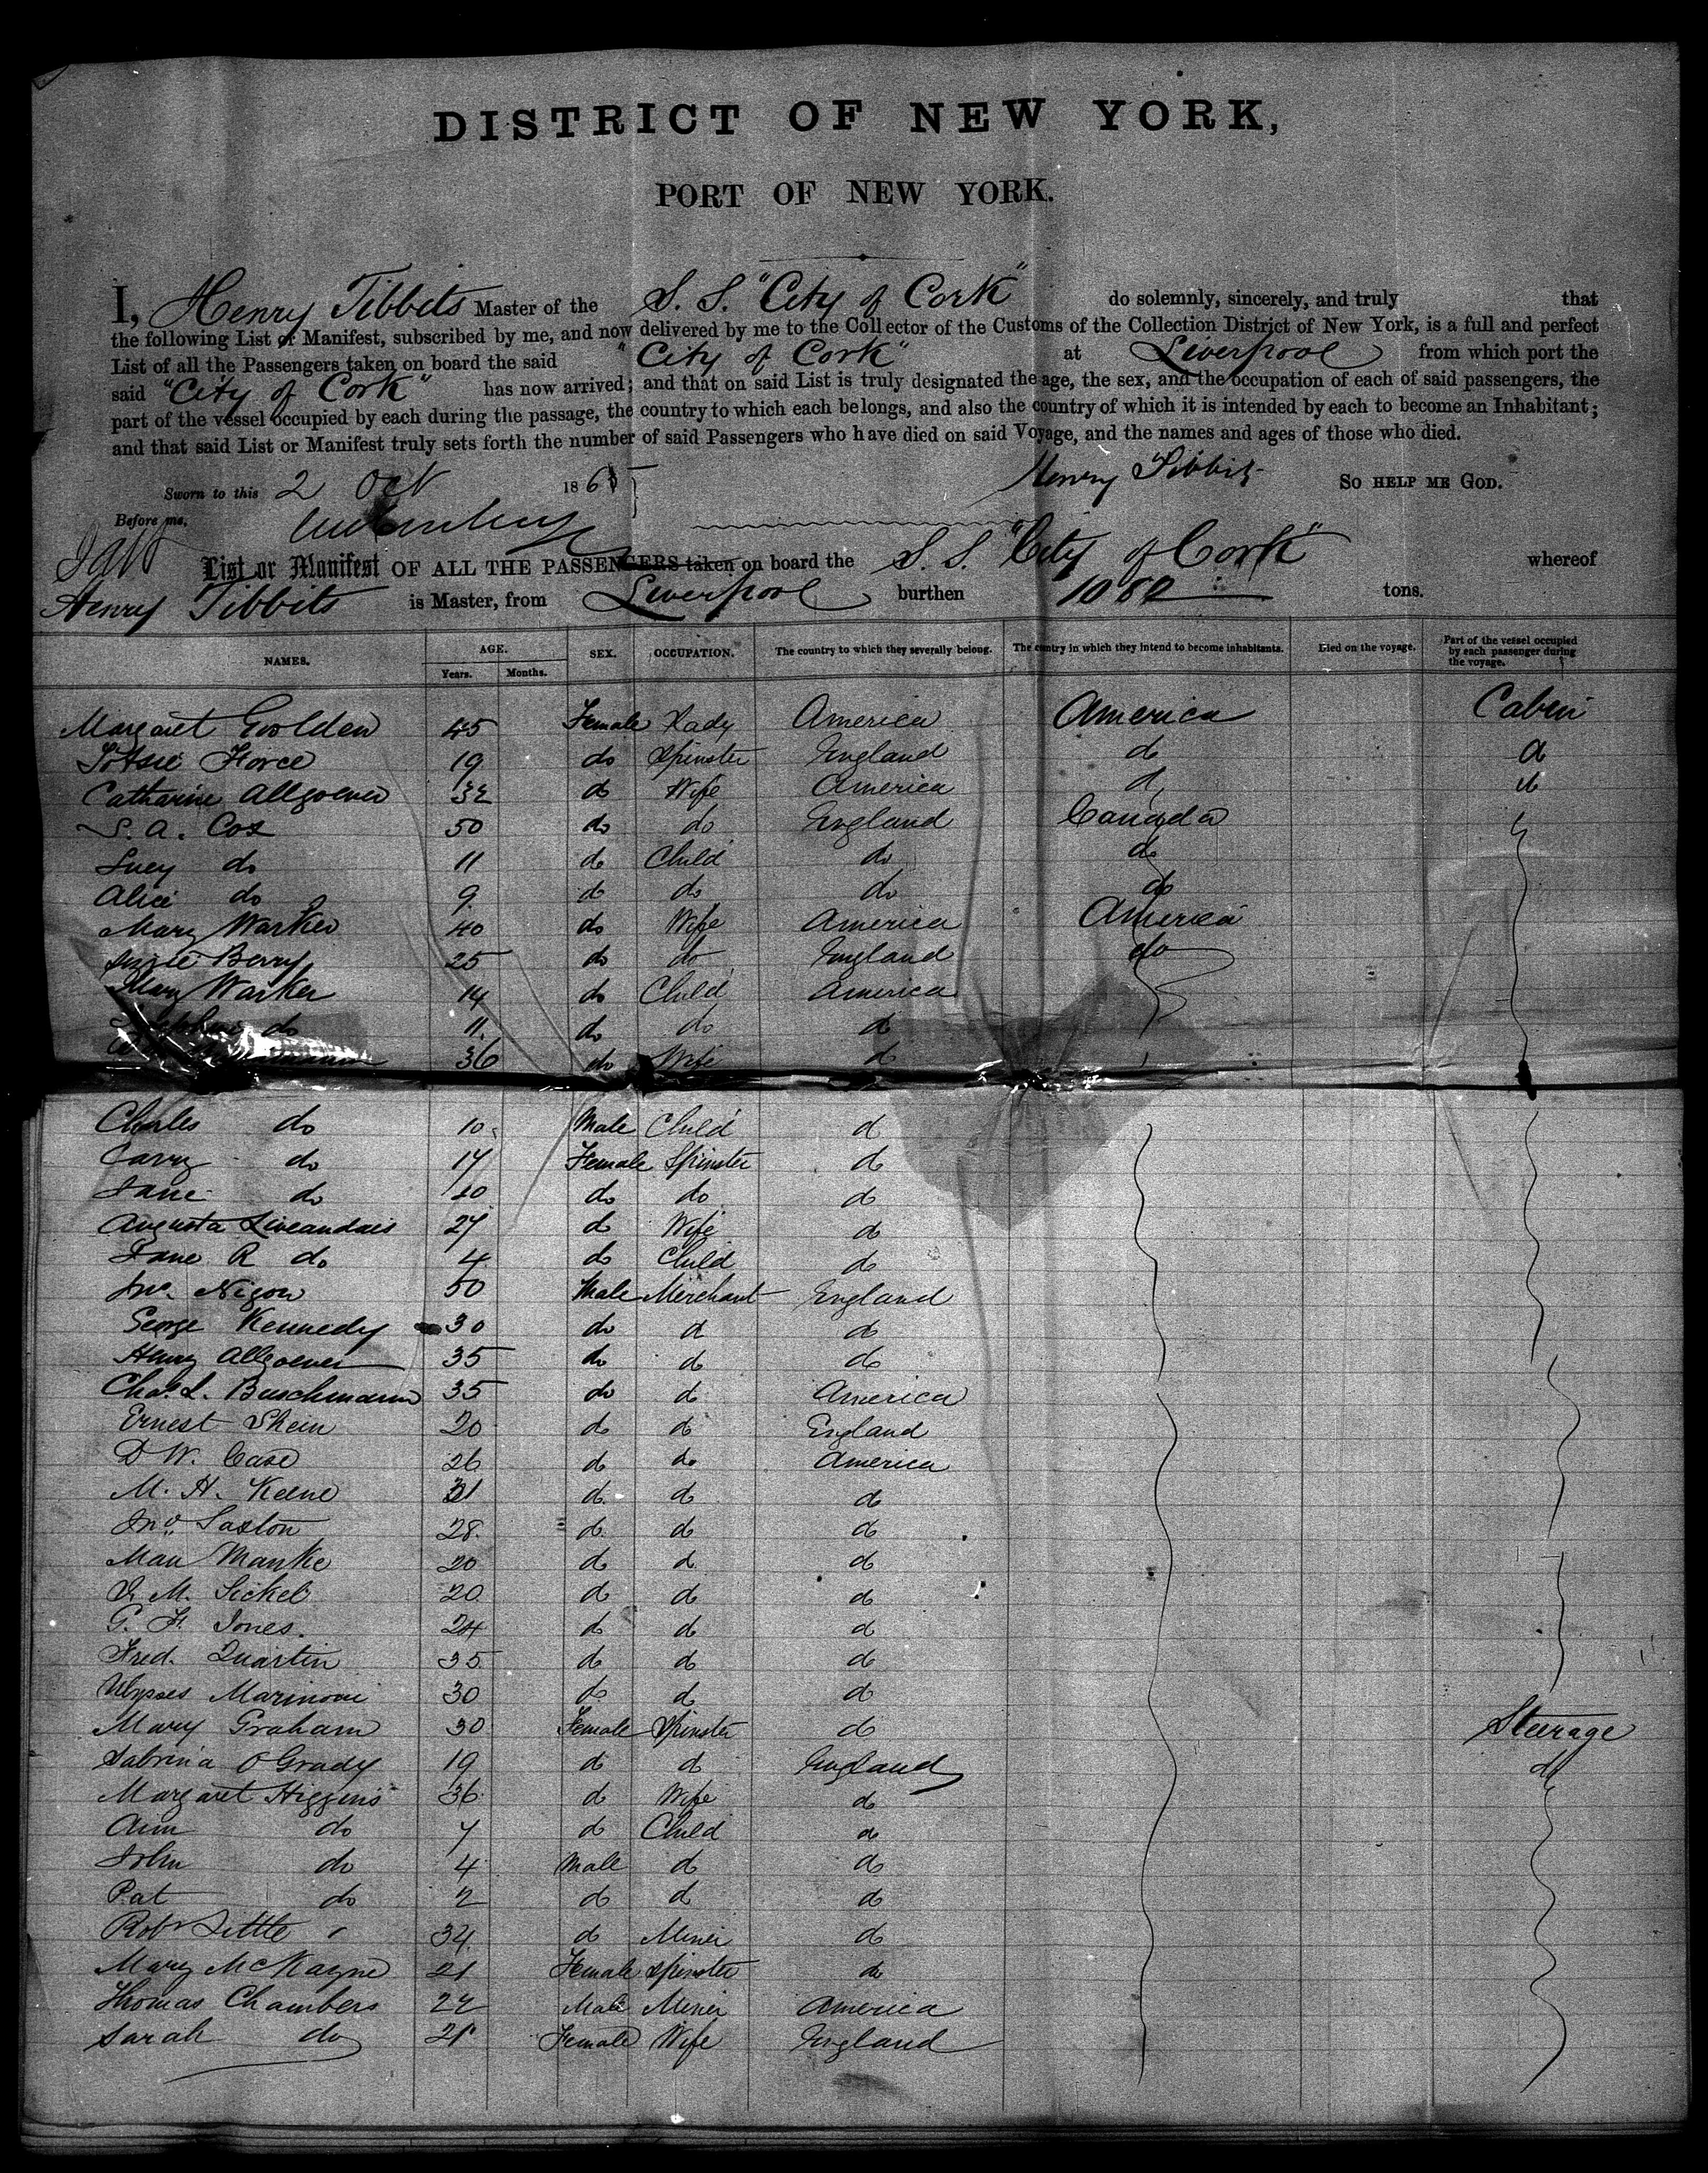 DISTRICT OF NEW YORK,
PORT OF NEW YORK.
I, Henry Tibbits Master of the S. S. "City of Cork" do solemnly, sincerely, and truly that
the following List or Manifest, subscribed by me, and now delivered by me to the Collector of the Customs of the Collection District of New York, is a full and perfect
List of all the Passengers taken on board the said "City of Cork" at Liverpool from which port the
said "City of Cork" has now arrived; and that on said List is truly designated the age, the sex, and the occupation of each of said passengers, the
part of the vessel occupied by each during the passage, the country to which each belongs, and also the country of which it is intended by each to become an Inhabitant;
and that said List or Manifest truly sets forth the number of said Passengers who have died on said Voyage, and the names and ages of those who died.
Sworn to this 2 Oct 1865 Henry Tibbits SO HELP ME GOD.
Before me,
List or Manifest OF ALL THE PASSENGERS taken on board the S. S. "City of Cork" whereof
Henry Tibbits is Master, from Liverpool burthen 1080 tons.
NAMES. AGE. Years. Months. SEX. OCCUPATION. The country to which they severally belong. The country in which they intend to become inhabitants. Died on the voyage. Part of the vessel occupied by each passenger during the voyage.
Margaret Golden 45 Female Lady America America Cabin
Force 19 do Spinster England do do
Catharine Allgoever 32 do Wife America do do
S. A. Cox 50 do do England Canada
Lucy do 11 do Child do do
Alice do 9 do do do do
Mary Warker 40 do Wife America America
Lizzie Berry 25 do do England do
Mary Warker 14 do Child America
do 11 do do do
36 do Wife do
Charles do 10 Male Child do
Carry do 17 Female Spinster do
Jane do do do do
Augusta Liveandais 27 do Wife do
Jane R do 4 do Child do
Jno. Nixon 50 Male Merchant England
George Kennedy 30 do do do
Henry Allgoever 35 do do do
Chas. L. Buschmann 35 do do America
Ernest Shein 20 do do England
D W. Case 26 do do America
M. H. Keene 31 do do do
Jno. Saxton 28 do do do
Max Manke 20 do do do
J. M. Sickel 20 do do do
G. F. Jones. 24 do do do
Fred. Quartin 35 do do do
Ulysses Marinoni 30 do do do
Mary Graham 30 Female Spinster do Steerage
Sabrina O Grady 19 do do England do
Margaret Higgins 36 do Wife do
Ann do 7 do Child do
John do 4 Male do do
Pat do 2 do do do
Robt Little 34 do Miner do
Mary McKayne 21 Female Spinster do
Thomas Chambers 22 Male Miner America
Sarah do 21 Female Wife England